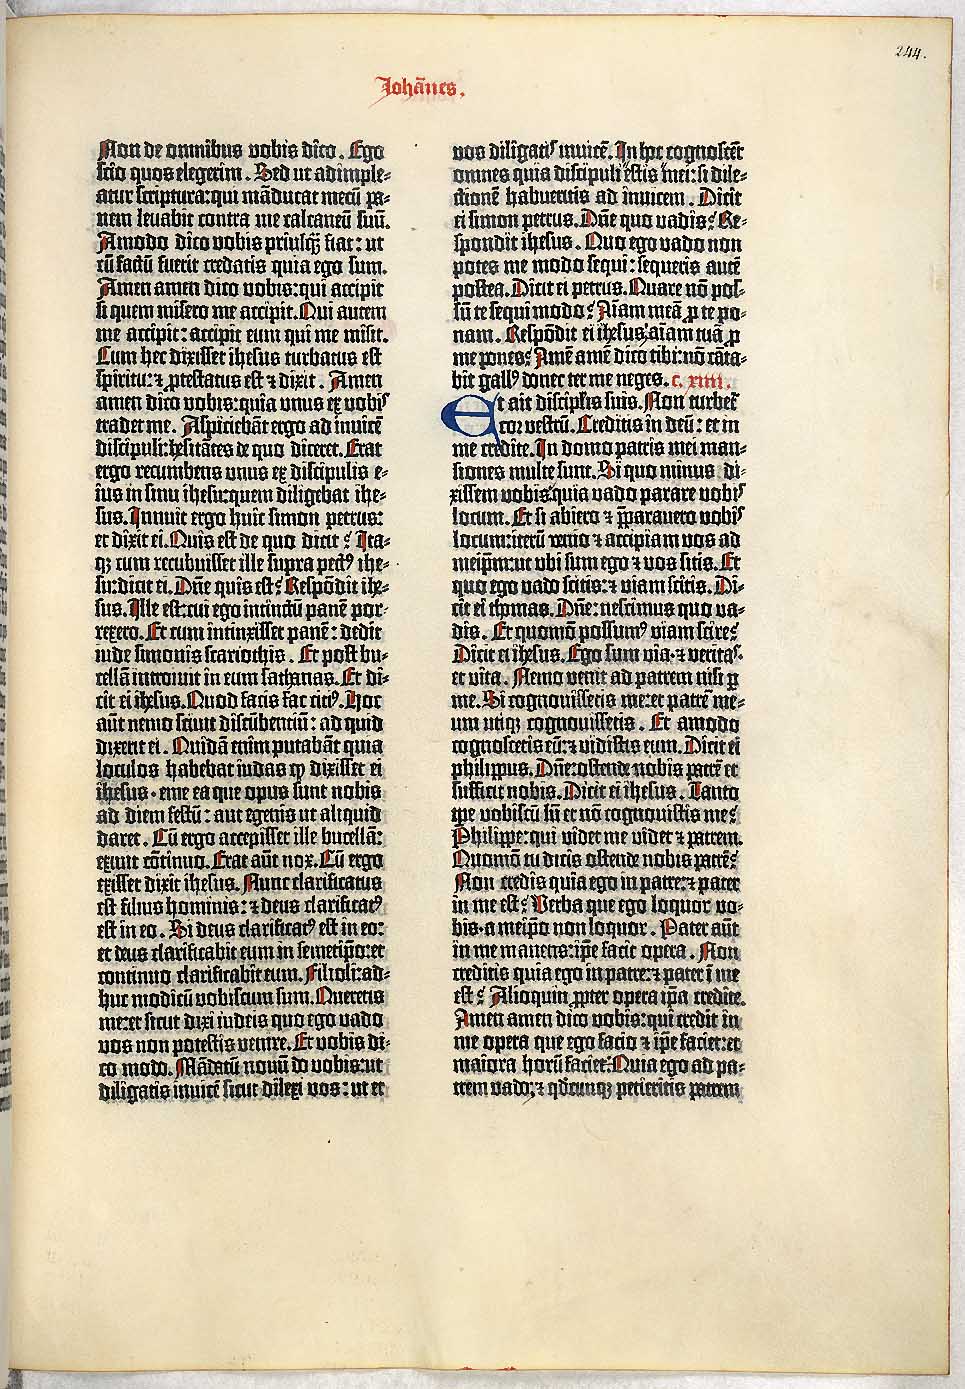 244.
Johānes.
Non de omnibus vobis dico. Ego
scio quos elegerim. Sed ut adimple-
atur scriptura: qui māducat mecū pa-
nem levabit contra me calcaneū suū.
Amodo dico vobis priusq̄ȝ fiat: ut
cū factū fuerit credatis quia ego sum.
Amen amen dico vobis: qui accipit
si quem misero me accipit. Qui autem
me accipit: accipit eum qui me misit.
Cum hec dixisset ihesus turbatus est
spiritu: ⁊ ꝓtestatus est ⁊ dixit. Amen
amen dico vobis: quia unus ex vobis
tradet me. Aspiciebāt ergo ad invicē
discipuli: hesitātes de quo diceret. Erat
ergo recumbens unus ex discipulis e-
ius in sinu ihesu: quem diligebat ihe-
sus. Innuit ergo huic simon petrus:
et dixit ei. Quis est de quo dicit? Ita-
qȝ cum recubuisset ille supra pectꝰ ihe-
su: dicit ei. Dn̄e quis est? Respōdit ihe-
sus. Ille est: cui ego intinctū panē por-
rexero. Et cum intinxisset panē: dedit
iude simonis scariothis. Et post bu-
cellā introivit in eum sathanas. Et di-
cit ei ihesus. Quod facis fac citiꝰ. Hoc
aūt nemo scivit discūbentiū: ad quid
dixerit ei. Quidā enim putabāt quia
loculos habebat iudas ꝙ dixisset ei
ihesus. eme ea que opus sunt nobis
ad diem festū: aut egenis ut aliquid
daret. Cū ergo accepisset ille bucellā:
exivit cōtinuo. Erat aūt nox. Cū ergo
exisset dixit ihesus. Nunc clarificatus
est filius hominis: ⁊ deus clarificatꝰ
est in eo. Si deus clarificatꝰ est in eo:
et deus clarificabit eum in semetip̄o: et
continuo clarificabit eum. Filioli: ad-
huc modicū vobiscum sum. Queretis
me: et sicut dixi iudeis quo ego vado
vos non potestis venire. Et vobis di-
co modo. Mādatū novū do vobis: ut
diligatis invicē sicut dilexi vos: ut et
vos diligatꝭ invicē. In hoc cognoscēt
omnes quia discipuli estis mei: si dile-
ctionē habueritis ad invicem. Dicit
ei simon petrus. Dn̄e quo vadis? Re-
spondit ihesus. Quo ego vado non
potes me modo sequi: sequeris autē
postea. Dicit ei petrus. Quare nō pos-
sū te sequi modo? Aīam meā ꝓ te po-
nam. Respōdit ei ihesus: aīam tuā ꝓ
me pones? Amē amē dico tibi: nō cāta-
bit gallꝰ donec ter me neges. c. xiiii.
Et ait discip̄lis suis. Non turbet᷑
cor vestrū. Creditis in deū: et in
me credite. In domo patris mei man-
siones multe sunt. Si quo minus di-
xissem vobis: quia vado parare vobis
locum. Et si abiero ⁊ p̄paravero vobis
locum: iterū venio ⁊ accipiam vos ad
meip̄m: ut ubi sum ego ⁊ vos sitis. Et
quo ego vado scitis: ⁊ viam scitis. Di-
cit ei thomas. Dn̄e: nescimus quo va-
dis. Et quomō possumꝰ viam scire?
Dicit ei ihesus. Ego sum via. ⁊ veritas.
et vita. Nemo venit ad patrem nisi ꝑ
me. Si cognovissetis me: et patrē me-
um utiqȝ cognovissetis. Et amodo
cognoscetis eū: ⁊ vidistis eum. Dicit ei
philippus. Dn̄e: ostende nobis patrē et
sufficit nobis. Dicit ei ihesus. Tanto
tꝑe vobiscū sū et nō cognovistis me?
Philippe: qui videt me videt ⁊ patrem.
Quomō tu dicis ostende nobis patrē?
Non credis quia ego in patre: ⁊ pater
in me est? Verba que ego loquor vo-
bis. a meip̄o non loquor. Pater aūt
in me manens: ip̄e facit opera. Non
creditis quia ego in patre: ⁊ pater ī me
est? Alioquin ꝓpter opera ip̄a credite.
Amen amen dico vobis: qui credit in
me opera que ego facio ⁊ ip̄e faciet: et
maiora horū faciet: Quia ego ad pa-
trem vado; ⁊ qd̄cunqȝ petieritis patrem